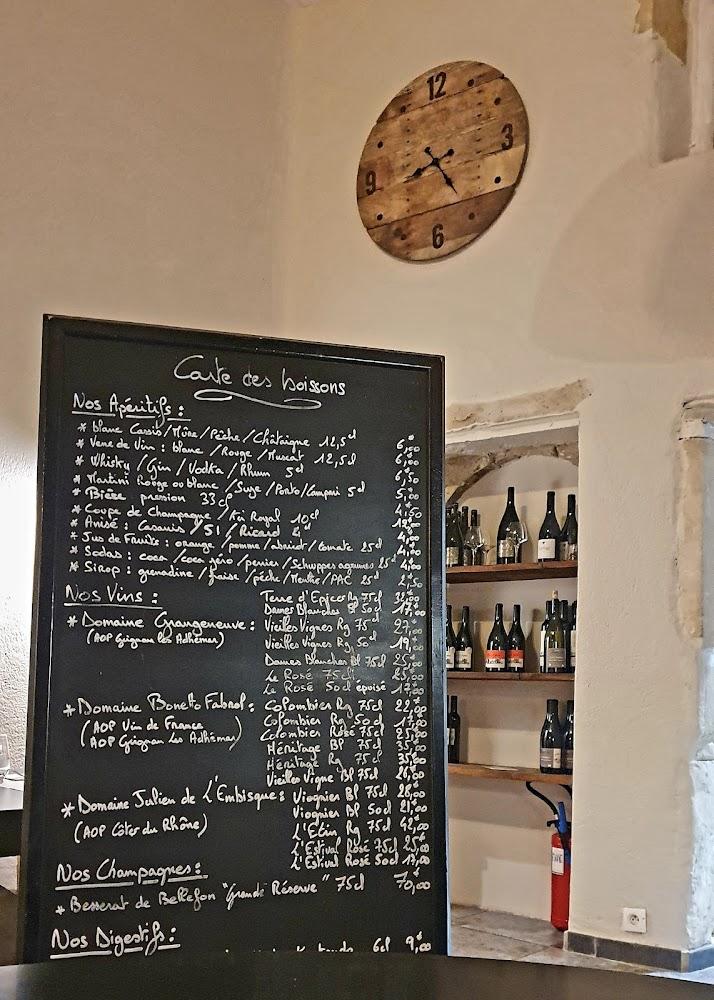 12
3
9
6
Carte des boissons
Nos Apéritifs :
* blanc Cassis / Mûre / Pêche / Châtaigne 12,5cl 6,00
* Verre de Vin : blanc / Rouge / Muscat 12,5cl 6,00
* Whisky / Gin / Vodka / Rhum 5cl 6,50
* Martini Rouge ou blanc / Suze / Porto / Campari 5cl 5,00
* Bière pression 33cl 4,50
* Coupe de Champagne / Kir Royal 10cl
* Anisé : Casanis / 51 / Ricard 4,00
* Jus de Fruits : orange / pomme / abricot / tomate 25cl 4,00
* Sodas : coca / coca zéro / perrier / Schweppes agrumes 25cl 4,00
* Sirop : grenadine / fraise / pêche / Menthe / PAC 25cl 2,50
Nos Vins :
* Domaine Grangeneuve :
(AOP Grignan les Adhémar)
Terre d'Epices Rg 75cl 32,00
Dames Blanches Bl 50cl 17,00
Vieilles Vignes Rg 75cl 27,00
Vieilles Vignes Rg 50cl 19,00
Dames Blanches Bl 75cl 25,00
Le Rosé 75cl 23,00
Le Rosé 50cl épuisé 17,00
* Domaine Bonetto Fabrol :
(AOP Vin de France
AOP Grignan les Adhémar)
Colombier Rg 75cl 22,00
Colombier Rg 50cl 17,00
Colombier Rosé 75cl
Héritage BP 75cl 35,00
Héritage Rg 75cl 35,00
Vieilles Vigne BP 75cl 26,00
* Domaine Julien de L'Embisque :
(AOP Côtes du Rhône)
Viognier BP 75cl
Viognier BP 50cl 21,00
Rg 75cl
L'Estival Rosé 75cl 25,00
L'Estival Rosé 50cl 17,00
Nos Champagnes :
* Besserat de Bellefon "Grande Réserve" 75cl 70,00
Nos Digestifs :
6cl 9,00